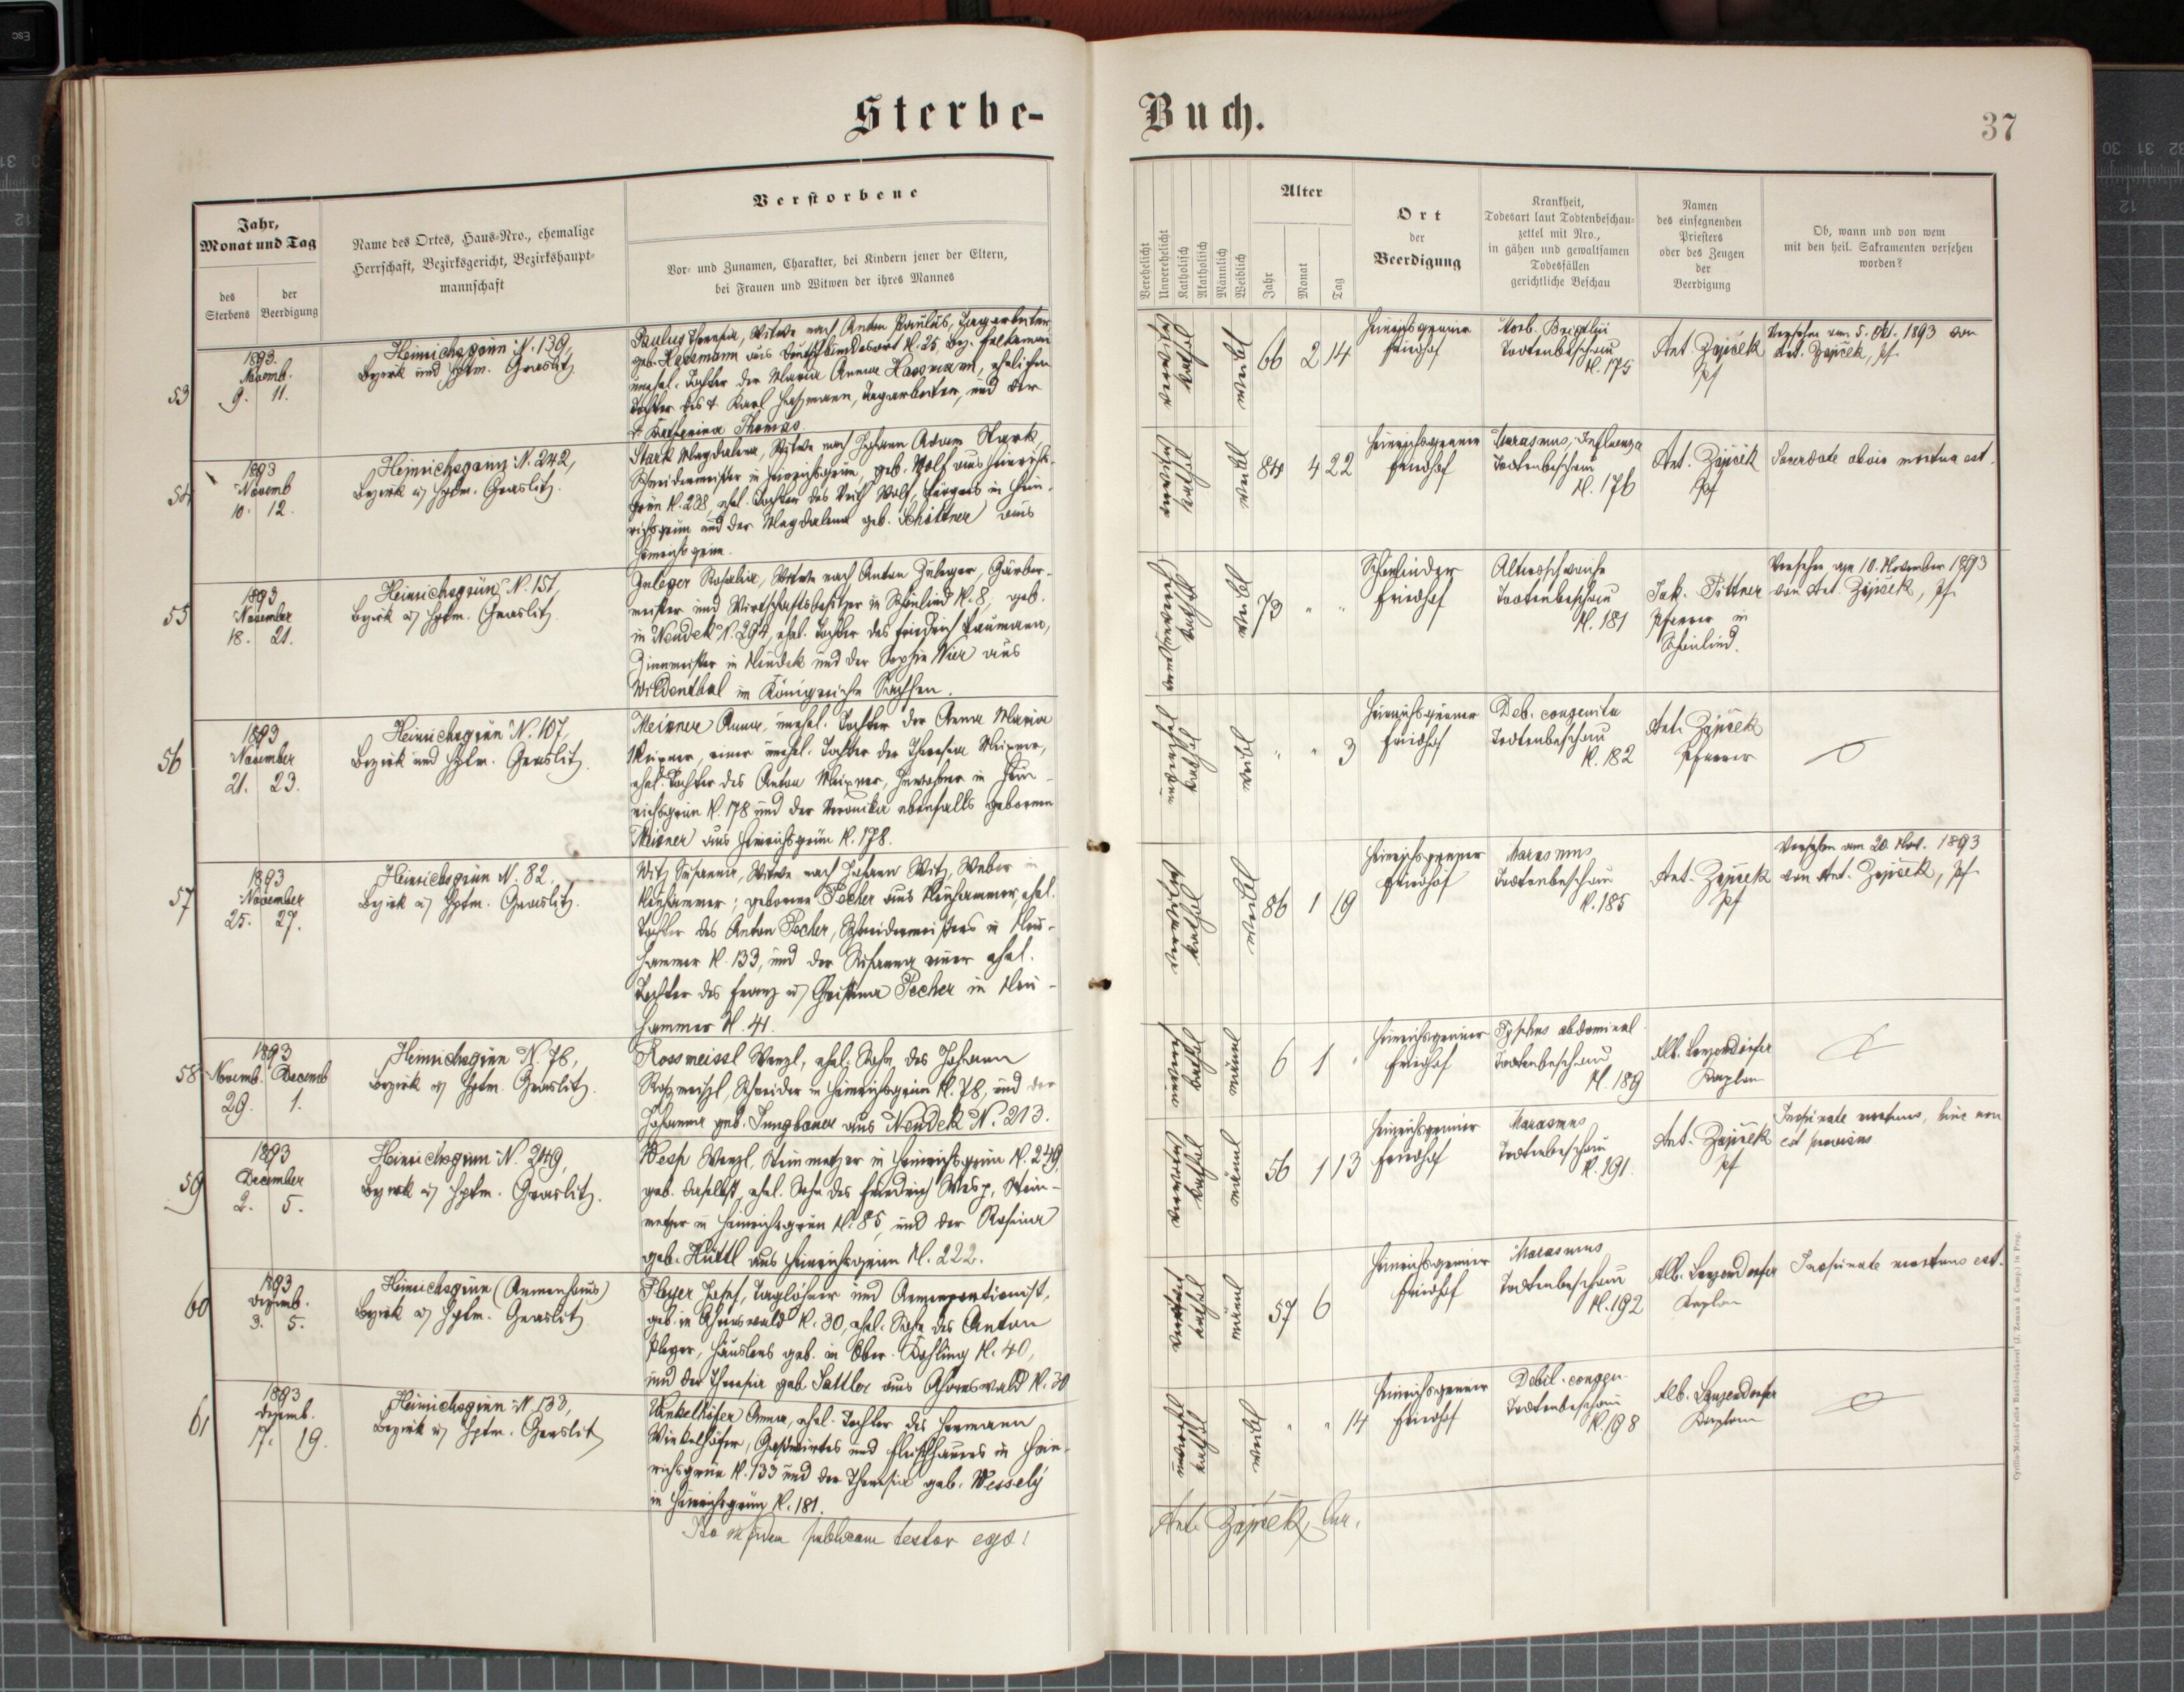 Sterbe-
Buch.
37
Jahr,
Monat und Tag
des
Sterbens
der
Beerdigung
Name des Ortes, Haus-Nro., ehemalige
Herrschaft, Bezirksgericht, Bezirkshaupt-
mannschaft
Verstorbene
Vor- und Zunamen, Charakter, bei Kindern jener der Eltern,
bei Frauen und Witwen der ihres Mannes
Verehelicht
Unverehelicht
Katholisch
Akatholisch
Männlich
Weiblich
Alter
Jahr
Monat
Tag
Ort
der
Beerdigung
Krankheit,
Todesart laut Todtenbeschau-
zettel mit Nro.,
in gähen und gewaltsamen
Todesfällen
gerichtliche Beschau
Namen
des einsegnenden
Priesters
oder des Zeugen
der
Beerdigung
Ob, wann und von wem
mit den heil. Sakramenten versehen
worden?
53
1893.
Novemb.
9. 11.
Heinrichsgrün N. 139,
Bezirk und Hptm. Graslitz
Paulus Theresia, Witwe nach Anton Paulus, Tagarbeiter,
geb. Hassmann aus
unehel. Tochter der Maria Anna Hassmann, ehelichen
Tochter des † Karl Hassmann, Tagarbeiter, und der
† Katharina Thomas.
verwitwet
kathol
weibl
66 2 14
Heinrichsgrüner
Friedhof
Morb. Brightii
Todtenbeschau
N. 175
Ant. Zajíček
Pf
Versehen am 5. Okt. 1893 von
Ant. Zajíček, Pf.
54
1893
Novemb
10. 12.
Heinrichsgrün N. 242,
Bezirk u. Hptm. Graslitz.
Stark Magdalena, Witwe nach Johann Adam Stark,
Schneidermeister in Heinrichsgrün, geb. Wolf aus Heinrichs-
grün N. 238, ehel. Tochter des Veit Wolf, Bürgers in Hein-
richsgrün und der Magdalena geb. Schittner aus
Heinrichsgrün.
verwitwet
kathol
weibl
84 4 22
Heinrichsgrüner
Friedhof
Marasmus, Influenza
Todtenbeschau
N. 176
Ant. Zajíček
Pf
mortua est.
55
1893
November
18. 21.
Heinrichsgrün N. 151,
Bezirk u. Hptm. Graslitz
Zuleger Rosalia, Witwe nach Anton Zuleger, Gärber-
meister und Wirtschaftsbesitzer in Schönlind N. 8, geb.
in Neudek N. 294, ehel. Tochter des Friedrich Baumann,
Zinnmeister in Neudek und der Sophie Nier aus
Wildenthal im Königreiche Sachsen.
kathol
weibl
73 " "
Schönlinder
Friedhof
Altersschwäche
Todtenbeschau
N. 181
Jak. Tittner
Pfarrer in
Schönlind.
Versehen am 10. November 1893
von Ant. Zajíček, Pf.
56
1893
November
21. 23.
Heinrichsgrün N. 107,
Bezirk und Hptm. Graslitz.
Meixner Anna, unehel. Tochter der Anna Maria
Meixner, einer unehel. Tochter der Theresia Meixner,
ehel. Tochter des Anton Meixner, Inwohner in Hein-
richsgrün N. 178 und der Veronika ebenfalls geborenen
Meixner aus Heinrichsgrün N. 178.
unverehel
kathol
weibl
" " 3
Heinrichsgrüner
Friedhof
Deb. congenita
Todtenbeschau
N. 182
Ant. Zajíček
Pfarrer
57
1893
November
25. 27.
Heinrichsgrün N. 82.
Bezirk u. Hptm. Graslitz.
Witz Susanna, Witwe nach Johann Witz, Weber in
Neuhammer; geborene Pecher aus Neuhammer, ehel.
Tochter des Anton Pecher, Schneidermeisters in Neu-
hammer N. 133, und der Susanna einer ehel.
Tochter des Franz u. Christina Pecher in Neu-
hammer N. 41.
verwitwet
kathol
weibl
86 1 19
Heinrichsgrüner
Friedhof
Marasmus
Todtenbeschau
N. 185
Ant. Zajíček
Pf
Versehen am 20. Nov. 1893
von Ant. Zajíček, Pf
58
1893
Novemb. Decemb
29. 1.
Heinrichsgrün N. 78,
Bezirk u. Hptm. Graslitz.
Rossmeissl Wenzl, ehel. Sohn des Johann
Rossmeissl, Schneider in Heinrichsgrün N. 78, und der
Johanna geb. Jungbauer aus Neudek N. 213.
unverehel
kathol
männl
6 1 "
Heinrichsgrüner
Friedhof
Typhus abdominal
Todtenbeschau
N. 189
Alb. Lanzendörfer
Kaplan
59
1893
December
2. 5.
Heinrichsgrün N. 249,
Bezirk u. Hptm. Graslitz.
Wesp Wenzl, Steinmetzer in Heinrichsgrün N. 249,
geb. daselbst, ehel. Sohn des Friedrich Wesp, Stein-
metzer in Heinrichsgrün N. 85, und der Rosina
geb. Hüttl aus Heinrichsgrün N. 222.
kathol
männl
56 1 13
Heinrichsgrüner
Friedhof
Marasmus
Todtenbeschau
N. 191.
Ant. Zajíček
Pf
mortuus, hinc non
est provisus
60
1893
Dezemb.
3. 5.
Heinrichsgrün (Armenhaus)
Bezirk u. Hptm. Graslitz
Pleyer Josef, Taglöhner und
geb. in Ahornswald N. 30, ehel. Sohn des Anton
Pleyer, Häuslers geb. in Ober- N. 40,
und der Theresia geb. Sattler aus Ahornswald N. 30
kathol
männl
57 6
Heinrichsgrüner
Friedhof
Marasmus
Todtenbeschau
N. 192
Alb. Lanzendörfer
Kaplan
mortuus est.
61
1893
Dezemb.
17. 19.
Heinrichsgrün N. 133,
Bezirk u. Hptm. Graslitz
Winkelhöfer Anna, ehel. Tochter des Hermann
Winkelhöfer, Gastwirtes und Fleischhauers in Hein-
richsgrün N. 133 und der Theresia geb. Wessely
in Heinrichsgrün N. 181.
unverehel
kathol
weibl
" " 14
Heinrichsgrüner
Friedhof
Debil. congen.
Todtenbeschau
N. 198
Alb. Lanzendörfer
Kaplan
in fidem publicam testor ego!
Ant. Zajíček, Cur.